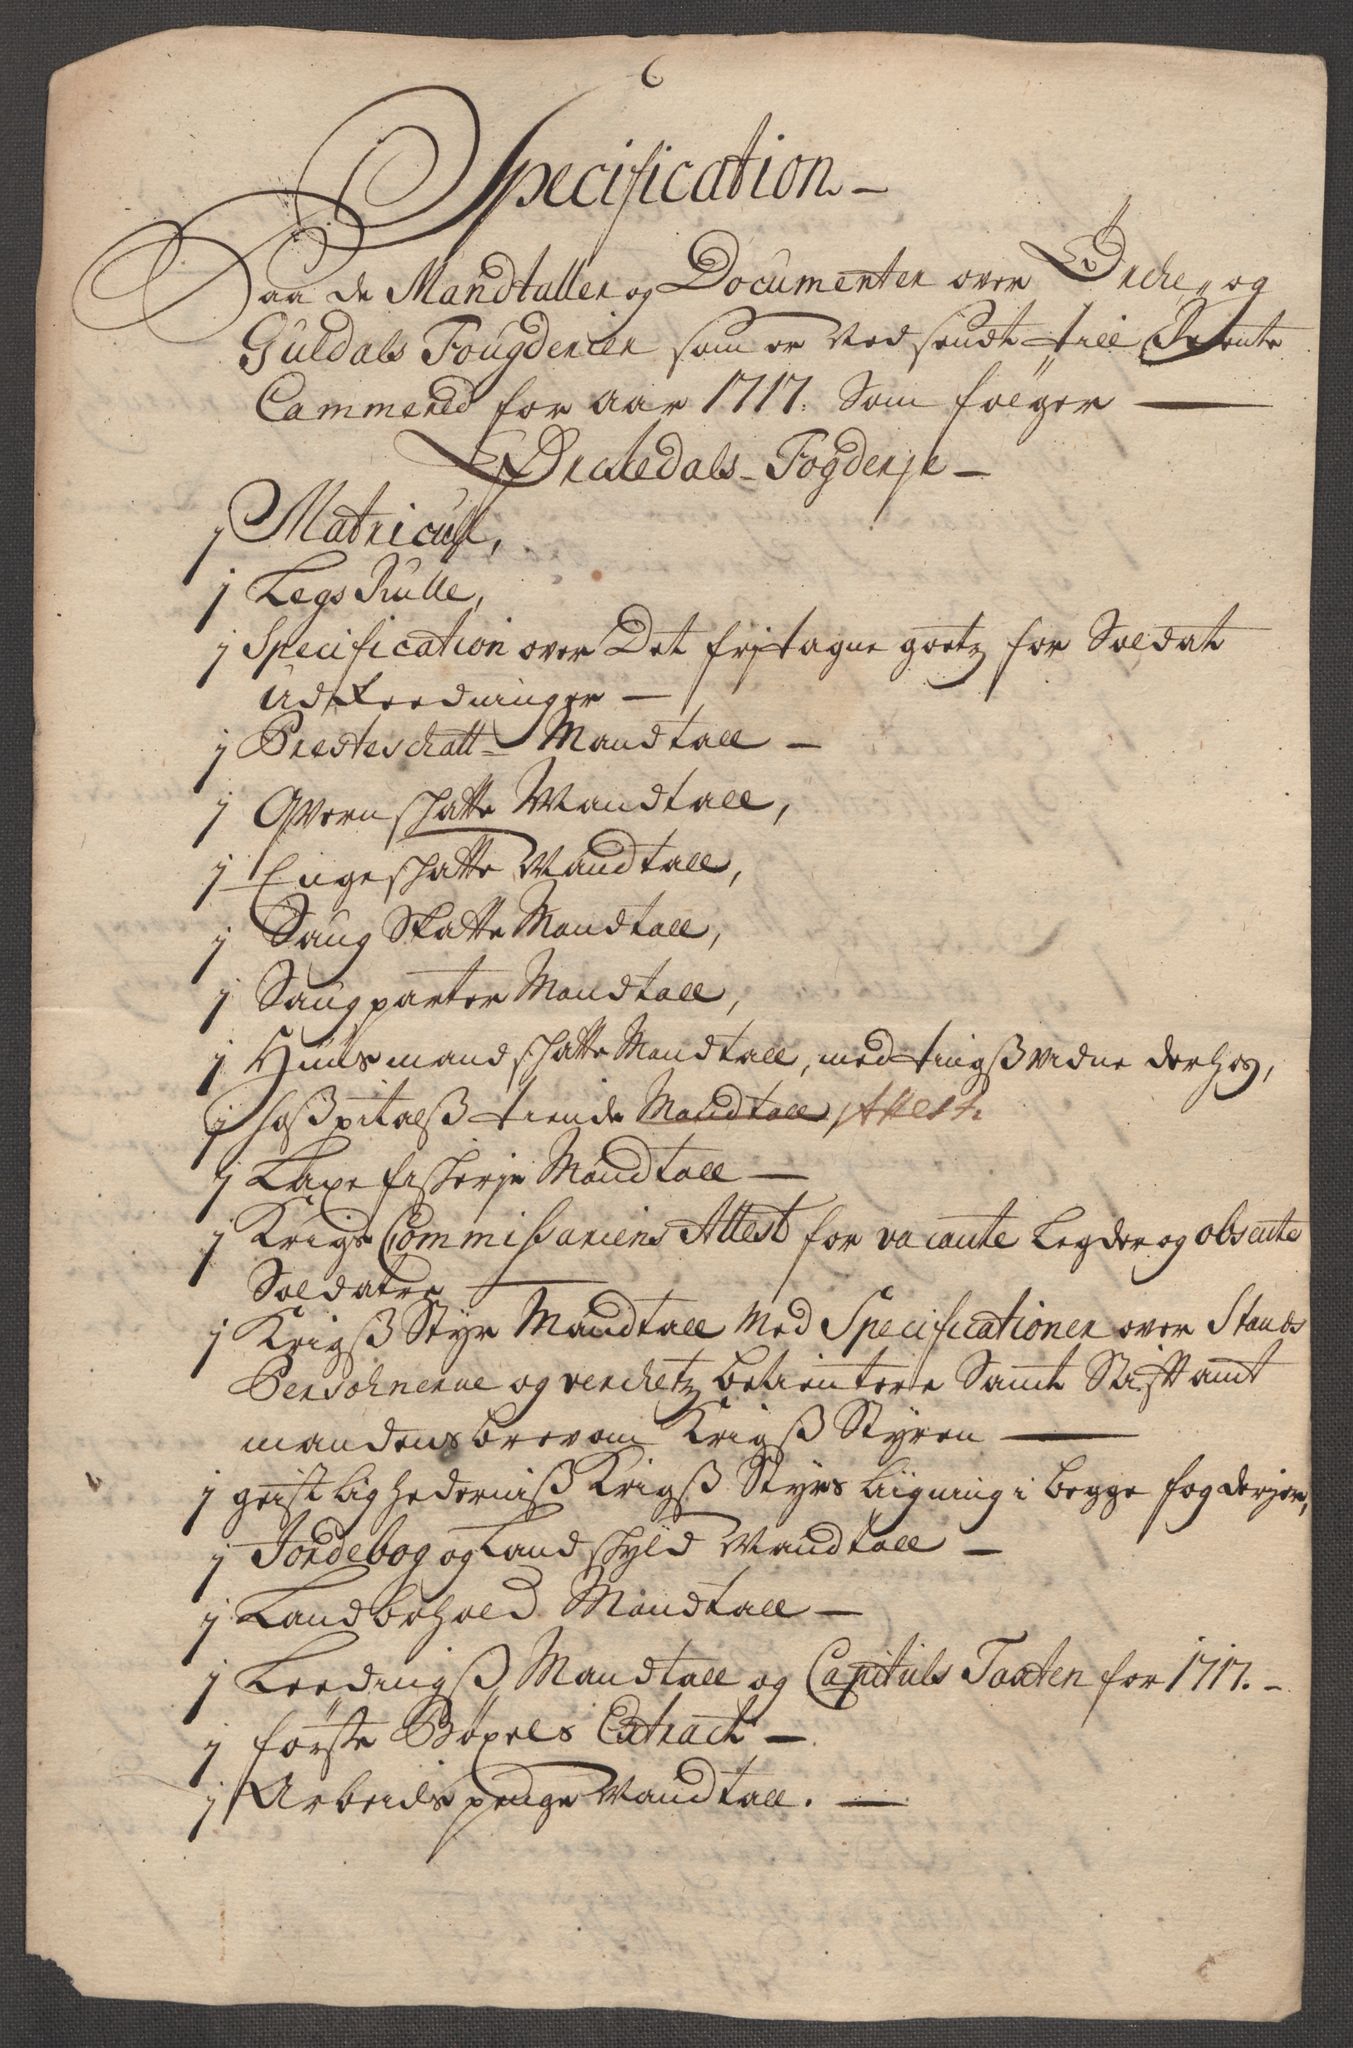 6
Specification.
Paa de Mandtaller og Documenter over Ørche, og
Guldals Fougderier som er Ned sendt till Rente
Cammered for aar 1717. Som følger
Ørckedals Fogderje
1 Matricul,
1 Legs Rulle,
1 Specification over Det frjtagne goetz for Soldat
Udreedninger
1 Presteschatt Mandtall
1 Qvernschatte Mandtall,
1 Engeschatte Mandtall,
1 Saug Skatte Mandtall,
1 Saugparter Mandtall,
1 Huusmandschatte Mandtall, med tingsß vidne derhos,
1 hoßpitalß tiende Mandtall Attest
1 Laxe fiskerje Mandtall
1 Krigs Commissariens Attest for vacante Legder og absente
Soldatre
1 Krigß Styr Mandtall Med Specificationer over Stands
Personerne og verchetz betientere Samt Stiftamt
mandens brev om Krigß Styren
1 geistlighederniß Krigß Styrs liigning i begge fogderjer,
1 Jordebog og Landschyld Mandtall
1 Landbohold Mandtall
1 Leedingß Mandtall og Capituls Taxten for 1717.
1 første Bøxels Extract
1 Arbeidspenge Mandtall.